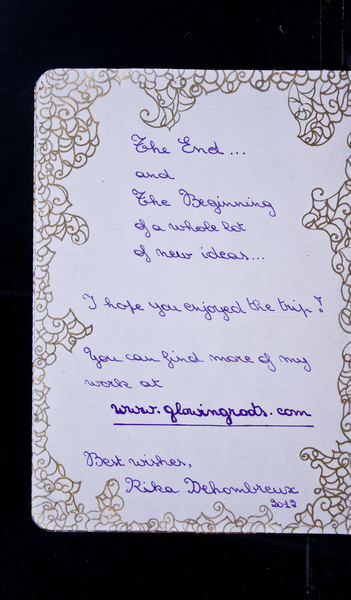 The End...
and
The Beginning
of a whole lot
of new ideas...
I hope you enjoyed the trip!
You can find more of my
work at
www.glowingroots.com
Best wishes,
Rika Dehombreux
2012